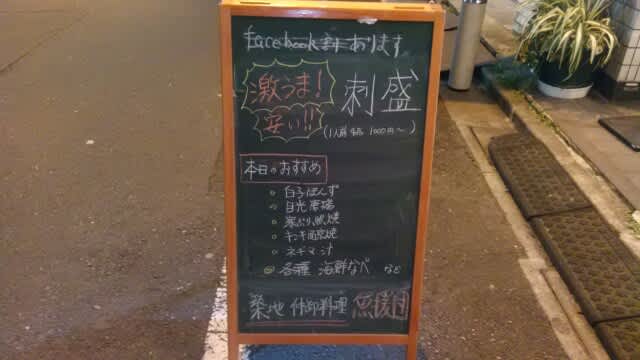 facebook あります
激うま!
安い!!
刺盛
(1人前 1000円〜)
本日のおすすめ
白子ぽんず
目光唐揚
寒ぶり 焼
キンキ 焼
ネギマ汁
各種 海鮮なべ など
築地 仲卸料理